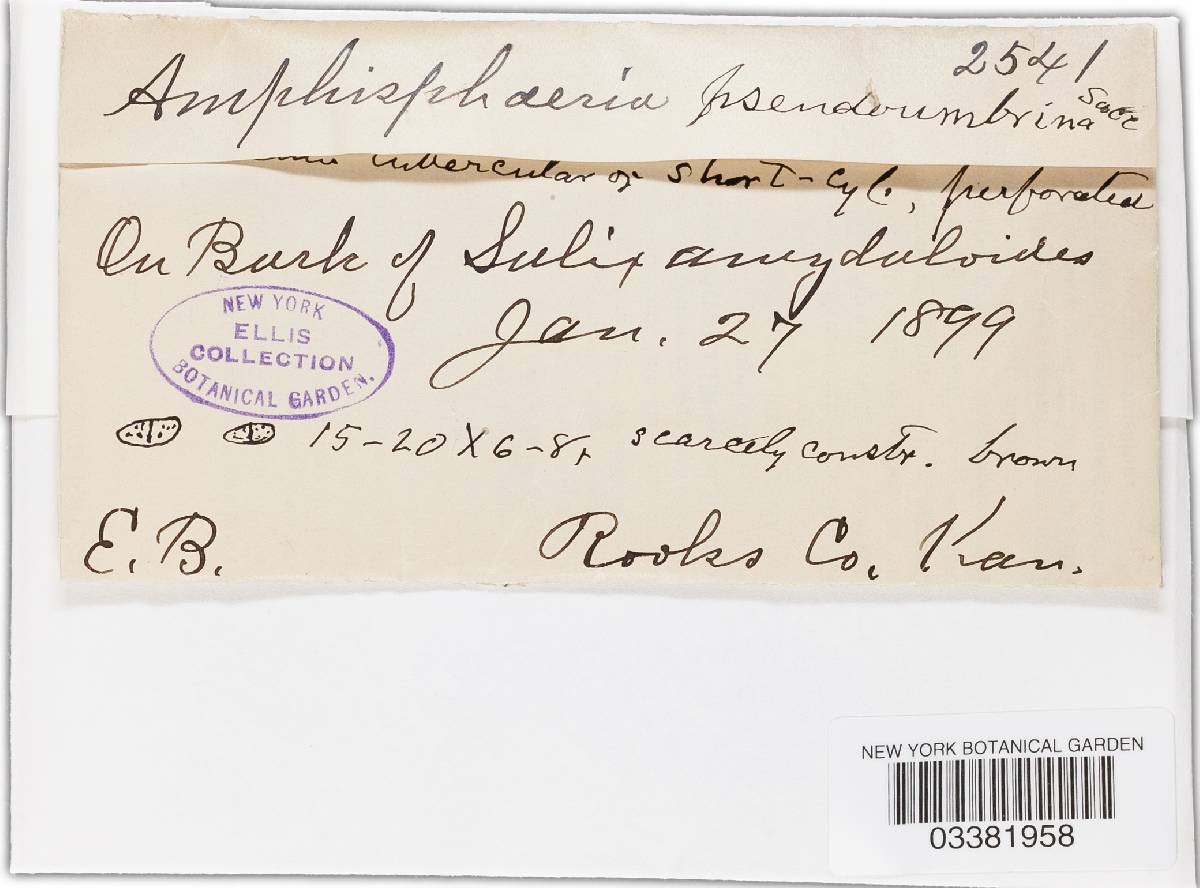 2541
Amphisphaeria pseudoumbrina Sacc
tubercular or short-cyl., perforated
On Bark of Salix amygdaloides
NEW YORK
ELLIS
COLLECTION
BOTANICAL GARDEN.
Jan. 27 1899
15-20 X 6-8, scarcely constr. brown
E.B. Rooks Co, Kan.
NEW YORK BOTANICAL GARDEN
03381958